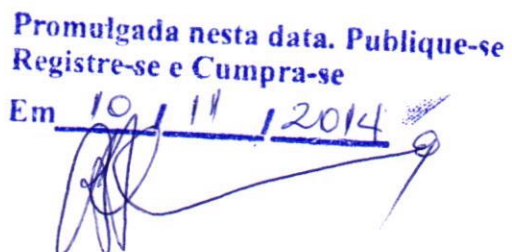 Promulgada nesta data. Publique-se
Registre-se e Cumpra-se
Em 10 / 11 / 2014